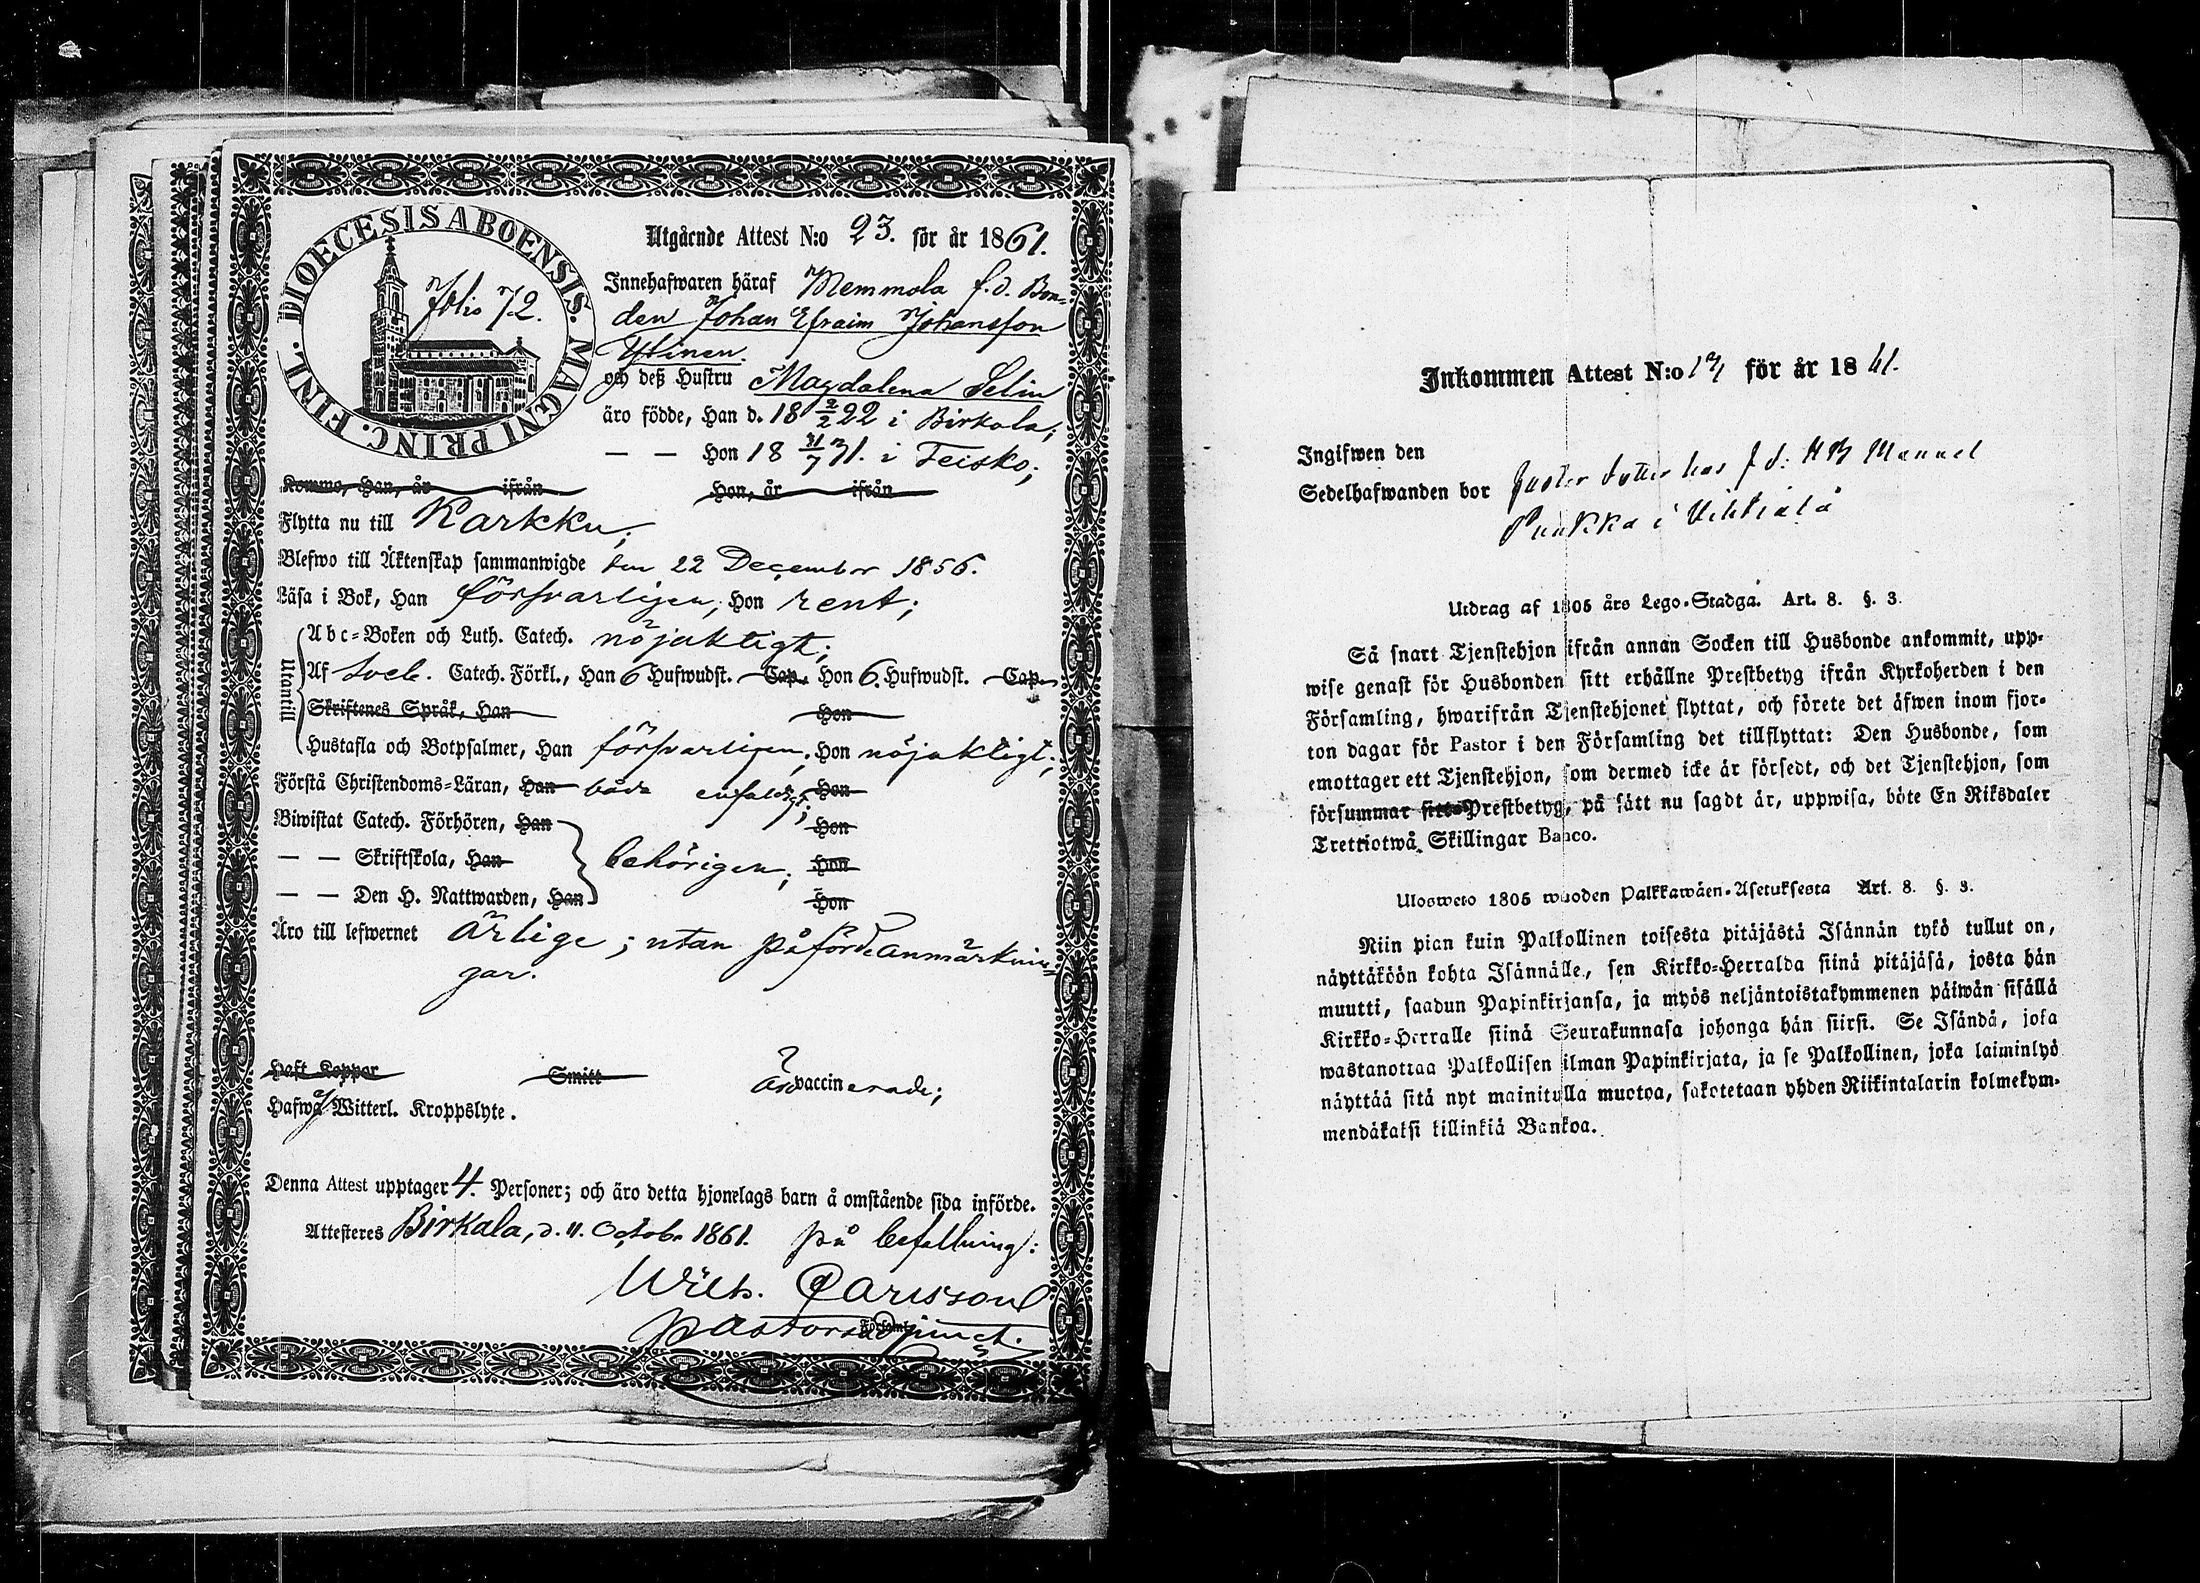 DIOECESIS ABOENSIS. MAGNI PRINC. FINL.
Folio 72.
Utgående Attest N:o 23. för år 1861.
Innehafwaren häraf Memmola f.d. Bon-
den Johan Efraim Johansson
Ylinen.
och deß Hustru Magdalena Selin
äro födde, Han d. 18 2/2 22 i Birkala;
— — Hon 18 31/7 31. i Teisko;
Kommo, Han, år ifrån Hon, år ifrån
Flytta nu till Karkku;
Blefwo till Äktenskap sammanwigde den 22 December 1856.
Läsa i Bok, Han försvarligen; Hon rent;
Utantill
Abc-Boken och Luth. Catech. nöjaktigt;
Af Sveb. Catech. Förkl., Han 6 Hufwudst. Cap. Hon 6. Hufwudst. Cap.
Skriftenes Språk, Han Hon
Hustafla och Botpsalmer, Han försvarligen; Hon nöjaktigt;
Förstå Christendoms-Läran, Han båda enfaldigt; Hon
Biwistat Catech. Förhören, Han Hon
— — Skriftskola, Han behörigen; Hon
— — Den H. Nattwarden, Han Hon
Äro till lefwernet ärlige; utan påförde anmärknin-
gar.
Haft Koppor Smitt äro vaccinerade;
Hafwa Witterl. Kroppslyte.
Denna Attest upptager 4. Personer; och äro detta hjonelags barn å omstående sida införde.
Attesteres Birkala, d. 11. Octobr 1861. på befallning:
Wilh. Carlsson
Pastorsadjunct.
Inkommen Attest N:o för år 1861.
Ingifwen den
Sedelhafwanden bor hos f.d.
i
Utdrag af 1805 års Lego-Stadga. Art. 8. §. 3.
Så snart Tjenstehjon ifrån annan Socken till Husbonde ankommit, upp-
wise genast för Husbonden sitt erhållne Prestbetyg ifrån Kyrkoherden i den
Församling, hwarifrån Tjenstehjonet flyttat, och förete det äfwen inom fjor-
ton dagar för Pastor i den Församling det tillflyttat: Den Husbonde, som
emottager ett Tjenstehjon, som dermed icke är försedt, och det Tjenstehjon, som
försummar sitt Prestbetyg, på sätt nu sagdt är, uppwisa, böte En Riksdaler
Trettiotwå Skillingar Banco.
Ulosweto 1805 wuoden Palkkawäen-Asetuksesta Art. 8. §. 3.
Niin pian kuin Palkollinen toisesta pitäjästä Isännän tykö tullut on,
näyttäköön kohta Isännälle, sen Kirkko-Herralda siinä pitäjäsä, josta hän
muutti, saadun Papinkirjansa, ja myös neljäntoistakymmenen päiwän sisällä
Kirkko-Herralle siinä Seurakunnasa johonga hän siirsi. Se Isändä, joka
wastanottaa Palkollisen ilman Papinkirjata, ja se Palkollinen, joka laiminlyö
näyttää sitä nyt mainitulla muotoa, sakotetaan yhden Riikintalarin kolmekym-
mendäkaksi killinkiä Bankoa.